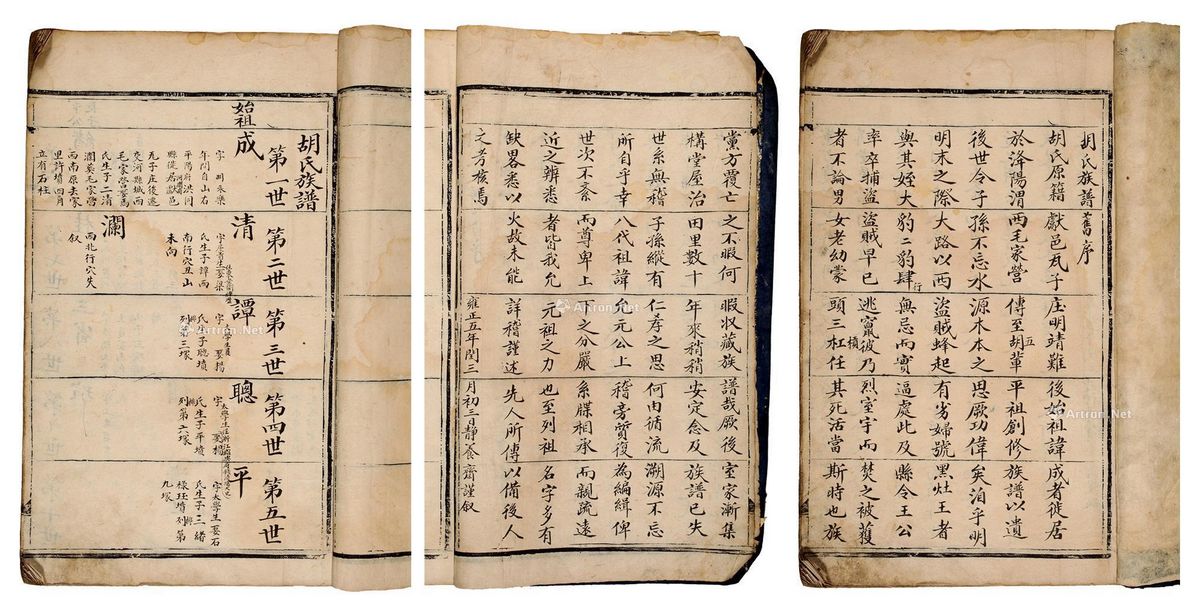 胡氏族譜舊序
胡氏原籍獻邑瓦子庄明靖難後始祖諱成者徙居
兩毛家營傳至胡輩五平祖創修族譜以遺
後世令子孫不忘水源木本之思厥功偉矣洎乎明
明末之際大路以西盜賊蜂起有劣婦號黑灶王者
與其姪大豹二豹肆行無忌而實逼處此及縣令王公
率卒捕盜盜賊早已逃竄彼乃烈室宇而焚之被獲
者不論男女老幼蒙頭三杠槓任其死活當斯時也族
黨方覆亡之不暇何暇收藏族譜哉厥後室家漸集
構堂屋治田里數十年來稍稍安定念及族譜已失
世系無稽子孫縱有仁孝之思何由循流溯源不忘
所自乎幸八代祖諱允元公上稽旁質復為編緝俾
世次不紊而尊卑上下之分嚴系牒相承而親疏遠
近之辨悉者皆我允元祖之力也至列祖名字多有
缺畧悉以火故未能詳稽謹述先人所傳以備後人
之考核焉
雍正五年閏三月初三日靜養齋謹叙
胡氏族譜
第一世
始祖成
字 永樂
年間自山右
平陽府洪同
縣徙居獻邑
瓦子庄後遷
交河縣城西
毛家營娶馬
氏生子二清
瀾葬毛家營
西南原去家
里許墳四月
立有石柱
第二世
清
氏生子譚西
南行穴丑山
未向
瀾
西北行穴失
叙
第三世
譚
娶楊
氏生子聰墳
列第三塚
第四世
聰
氏生子平墳
列第六塚
第五世
平
字太學生娶石
氏生子三緒
祿珏墳列第
九塚
Artron.Net
Artron.Net
Artron.Net